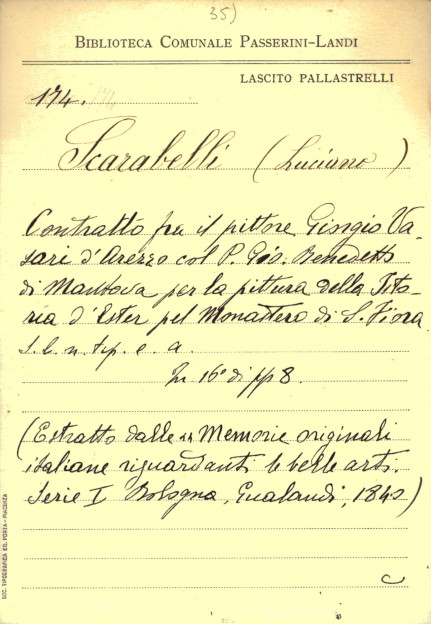 35)
BIBLIOTECA COMUNALE PASSERINI-LANDI
LASCITO PALLASTRELLI
174.
Scarabelli (Luciano)
Contratto fra il pittore Giorgio Va-
sari d'Arezzo col P. Gio. Benedetto
di Mantova per la pittura della
ria d'Ester pel Monastero di S. Fiora
s. l. n. tip. e a.
In 16° di pp 8.
(Estratto dalle "Memorie originali
italiane riguardanti le belle arti.
Serie I Bologna, Gualandi, 1840)
C
SOC. TIPOGRAFICA ED. PORTA - PIACENZA